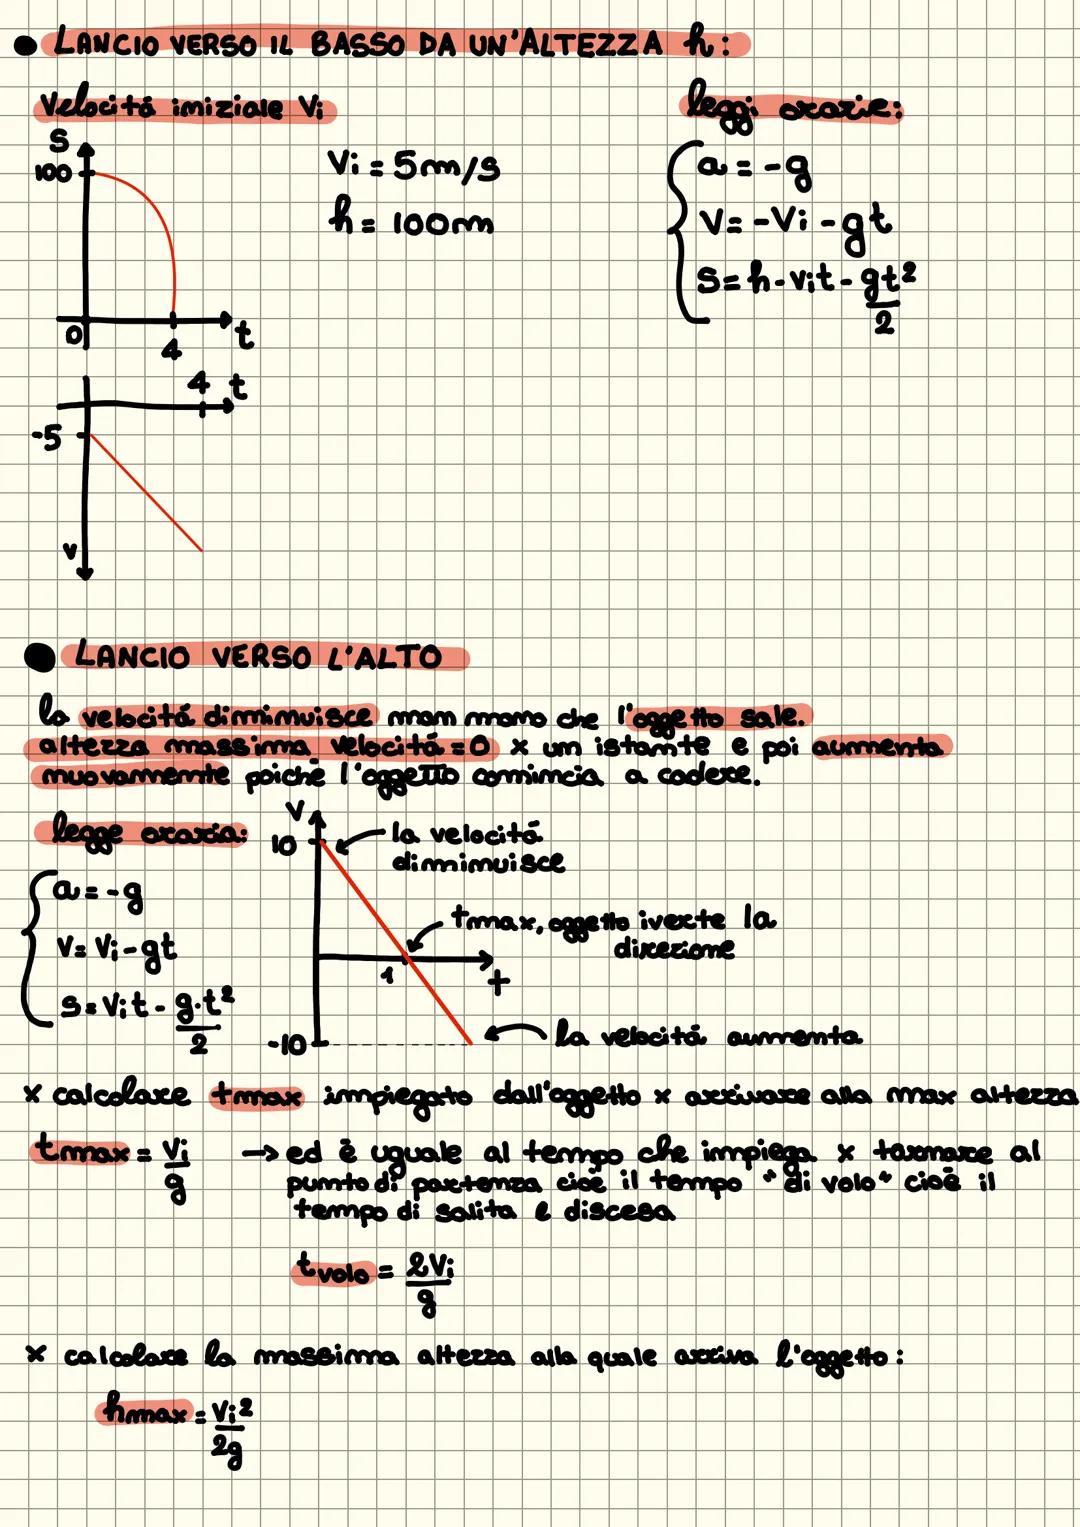 ● LANCIO VERSO IL BASSO DA UN'ALTEZZA h:
Velocitá iniziale Vi
leggi orarie:
S
100
0
4
t
Vi = 5m/s
h = 100m
a = -g
V = -Vi - gt
S = h - vit - gt²/2
4 t
-5
v
● LANCIO VERSO L'ALTO
la velocitá diminuisce man mano che l'oggetto sale.
altezza massima velocitá = 0 x un istante e poi aumenta
nuovamente poiché l'oggetto comincia a cadere.
legge oraria:
a = -g
V = Vi - gt
S = Vit - g·t²/2
V
10
la velocitá
diminuisce
tmax, oggetto iverte la
direzione
1
t
-10
la velocitá aumenta
x calcolare tmax impiegato dall'oggetto x arrivare alla max altezza
tmax = Vi/g → ed é uguale al tempo che impiega x tornare al
punto di partenza cioé il tempo "di volo" cioé il
tempo di salita e discesa
tvolo = 2Vi/g
x calcolare la massima altezza alla quale arriva l'oggetto:
hmax = Vi²/2g